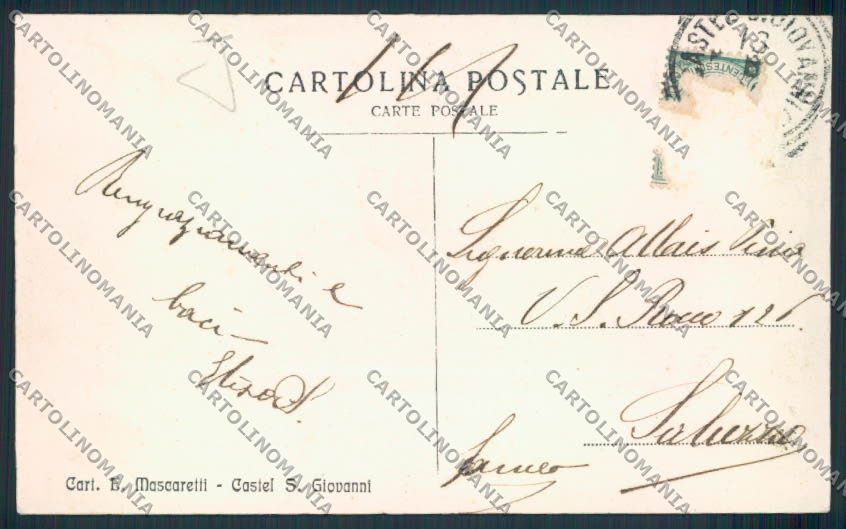 CARTOLINA POSTALE
CARTE POSTALE
CASTEL S. GIOVANNI
Ringraziamenti e
baci
Signorina Allais
V. S. Rocco 126
Saluzzo
Cart. E. Mascaretti - Castel S. Giovanni
CARTOLINOMANIA